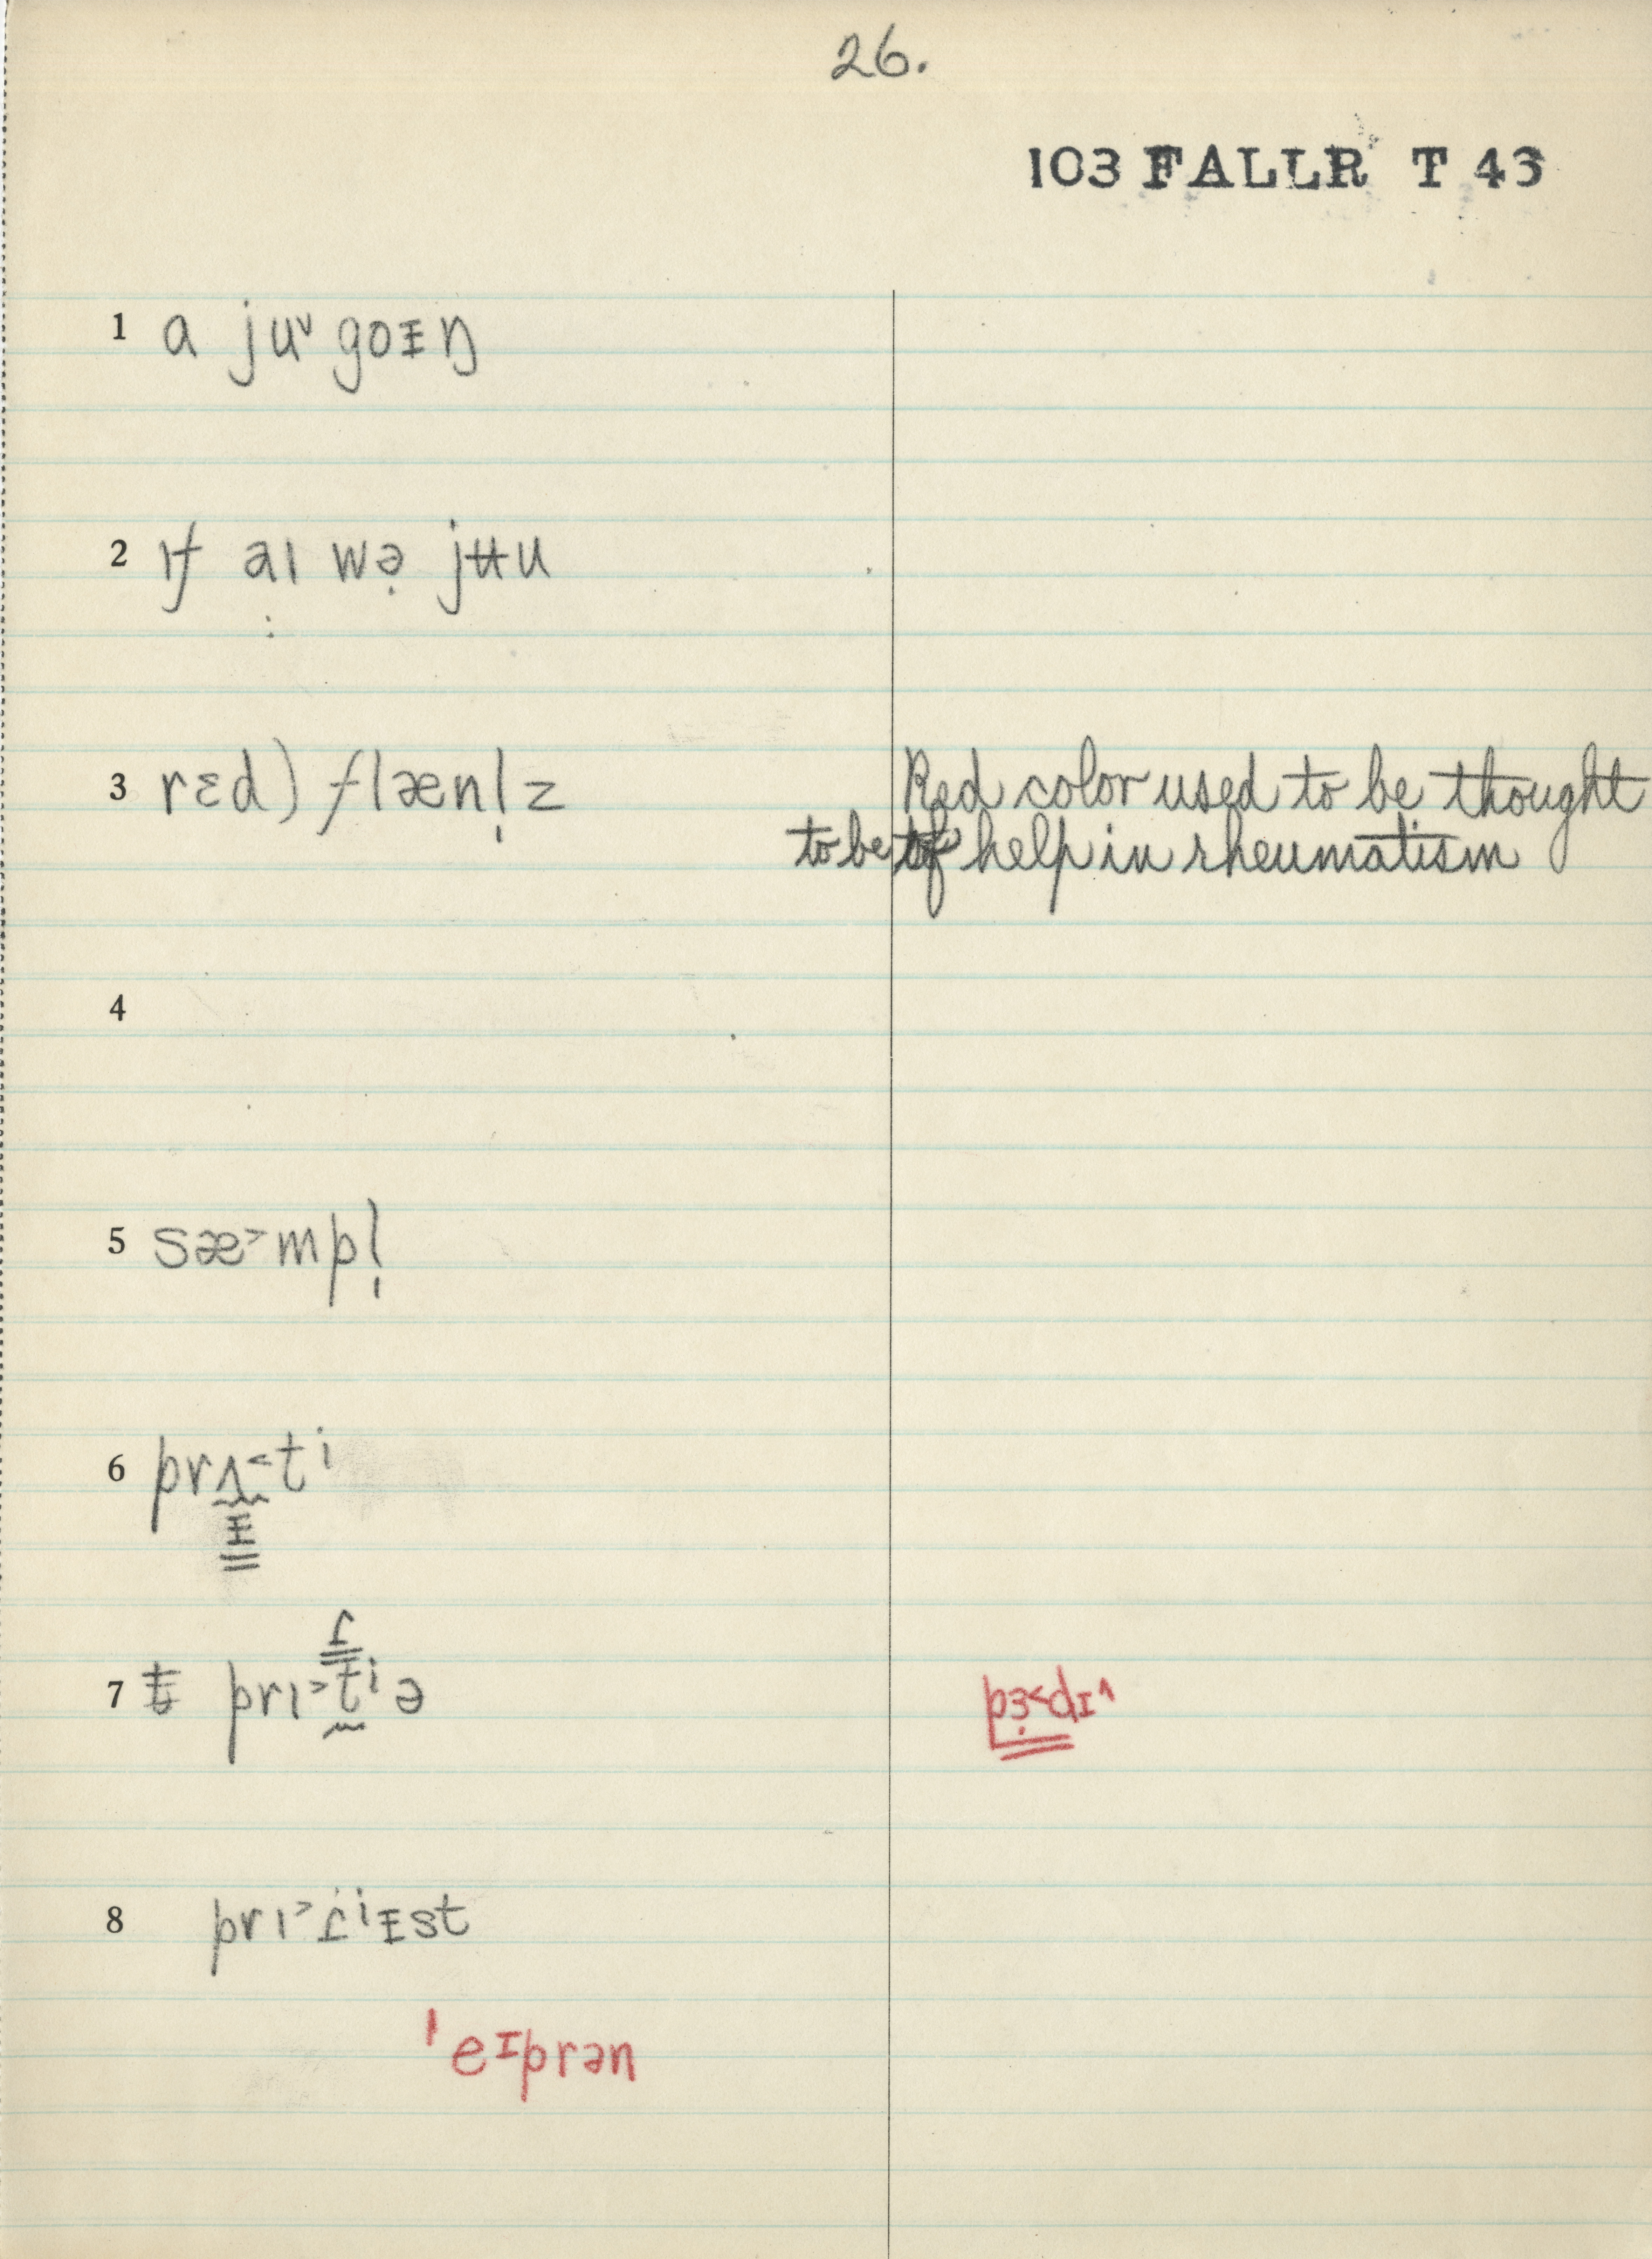 26.
103 FALLR T 43
1 a juᵛ goᵻŋ
2 ɪf aɪ wə̣ jʉu
3 rɛd) flænl̩z Red color used to be thought
to be of help in rheumatism
4
5 sæ˃mpl̩
6 prʌ˂tⁱ
ᵻ
ɾ
7 t̵ prɪ˃t̰ⁱə pɜ̣˂dɪ^
8 prɪ˃ɾⁱᵻst
ˈeɪprən